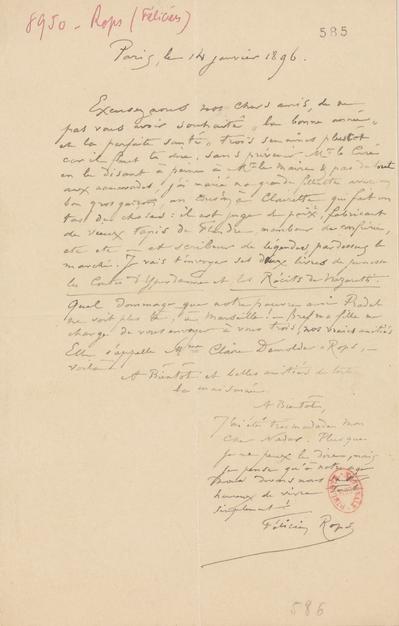 8950 - Rops (Félicien)
585
Paris, le 14 janvier 1896.
Excusez nous nos chers amis, de ne
pas vous avoir souhaité, la bonne année,
et la parfaite santé, trois semaines plustôt
car il faut le dire, sans prévenir Mr le Curé
en le disant à peine à Mr le Maire & pas du tout
aux annonces, j'ai marié ma grande fillette avec un
bon gros garçon, un cousin à Clairette qui fait un
tas de choses: il est juge de paix, fabricant
de vieux tapis de Flandre, membre de confrérie,
etc etc — et scribeur de légendes, par dessus le
marché. Je vais t'envoyer ses deux livres de jeunesse
les Contes d'Yperdamme et les Récits de Nazareth.
Quel dommage que notre pauvre ami Pradel
ne voit plus là, à Marseille! — Bref ma fille me
charge de vous envoyer à vous trois, nos vraies amitiés
Elle s'appelle Mme Claire Demolder-Rops, —
voilà!
A Bientôt et belles amitiés de toute
la maisonnée.
A Bientôt,
J'ai été très malade mon
cher Nadar. Plus que
je ne peux le dire, mais
je pense qu'à notre âge
nous devons nous
heureux de vivre tout
simplement!
Félicien Rops
586